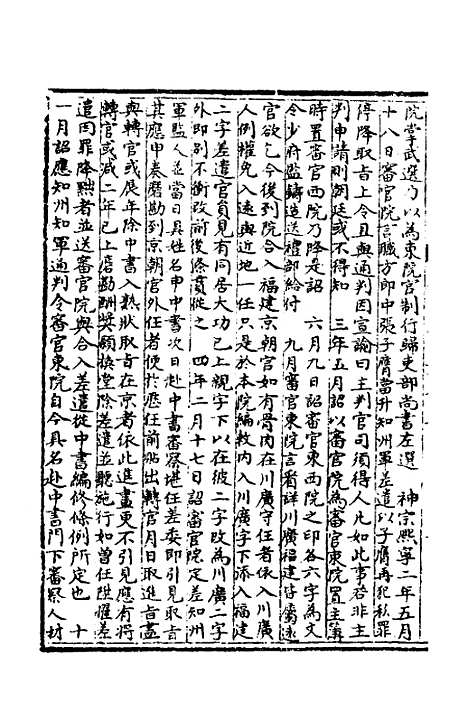 院掌武選乃以為東院官制行歸吏部尚書左選　神宗熙寧二年五月
十八日審官院言職方郎中張子膺當升知州軍差遣以子膺再犯私罪
停降取旨上令且與通判因宣諭曰主判官司須得人凡如此事若非主
判申請則朝廷或不得知　三年五月詔以審官院為審官東院置主簿
時置審官西院乃降是詔　六月九日詔審官東西院之印各六字為文
令少府監鑄造送禮部給付　九月審官東院言看詳川廣福建皆屬遠
官欲乞今後到院合入福建京朝官如有骨肉在川廣守任者依入川廣
人例權免入遠與近地一任只是於本院編敕內入川廣字下添入福建
二字差遣官員見有同居大功已上親字下以在彼二字改為川廣二字
外即別不衝改前後條貫從之　四年二月十七日詔審官院定差知州
軍監人並當日具姓名申中書次日赴中書審察堪任差委即引見取旨
其應申奏磨勘到京朝官外任者便於應任前貼出轉官月日取進旨盡
與轉官或展年除中書入熟狀取旨在京者依此進畫更不引見應有得
轉官或減二年已上磨勘酬獎願換堂除差遣並聽施行如曾任陞擢差
遣因罪降黜者並送審官院與合入差遣從中書編修條例所定也　十
一月詔應知州知軍通判令審官東院自今具名赴中書門下審察人材